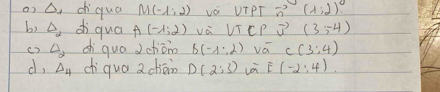 a) Δ₁ đi qua M(-1;2) và VTPT n⃗ (1;2)
b) Δ₂ đi qua A(-1;2) và VTCP u⃗ (3;-4)
c) Δ₃ đi qua 2 điểm B(-1;2) và C(3;4)
d) Δ₄ đi qua 2 điểm D(2;3) và E(-2;4).